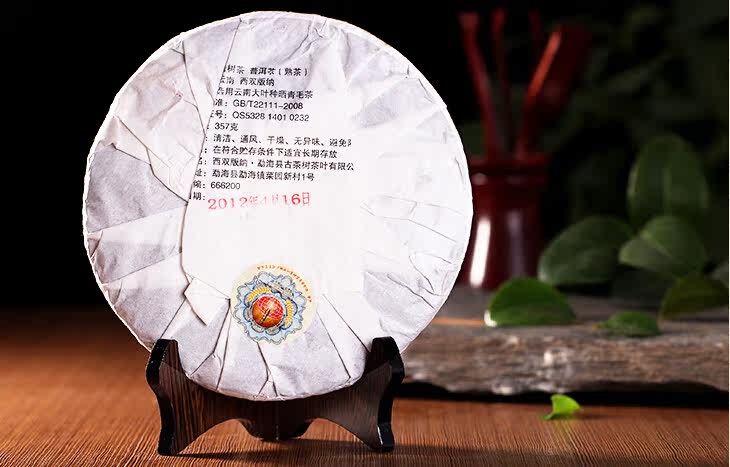 树茶 普洱茶(熟茶)
云南 西双版纳
选用云南大叶种晒青毛茶
准: GB/T22111-2008
号: QS5328 1401 0232
: 357克
: 清洁、通风、干燥、无异味、避免阳
: 在符合贮存条件下适宜长期存放
: 西双版纳·勐海县古茶树茶叶有限公
址: 勐海县勐海镇菜园新村1号
编: 666200
期: 2012年4月16日